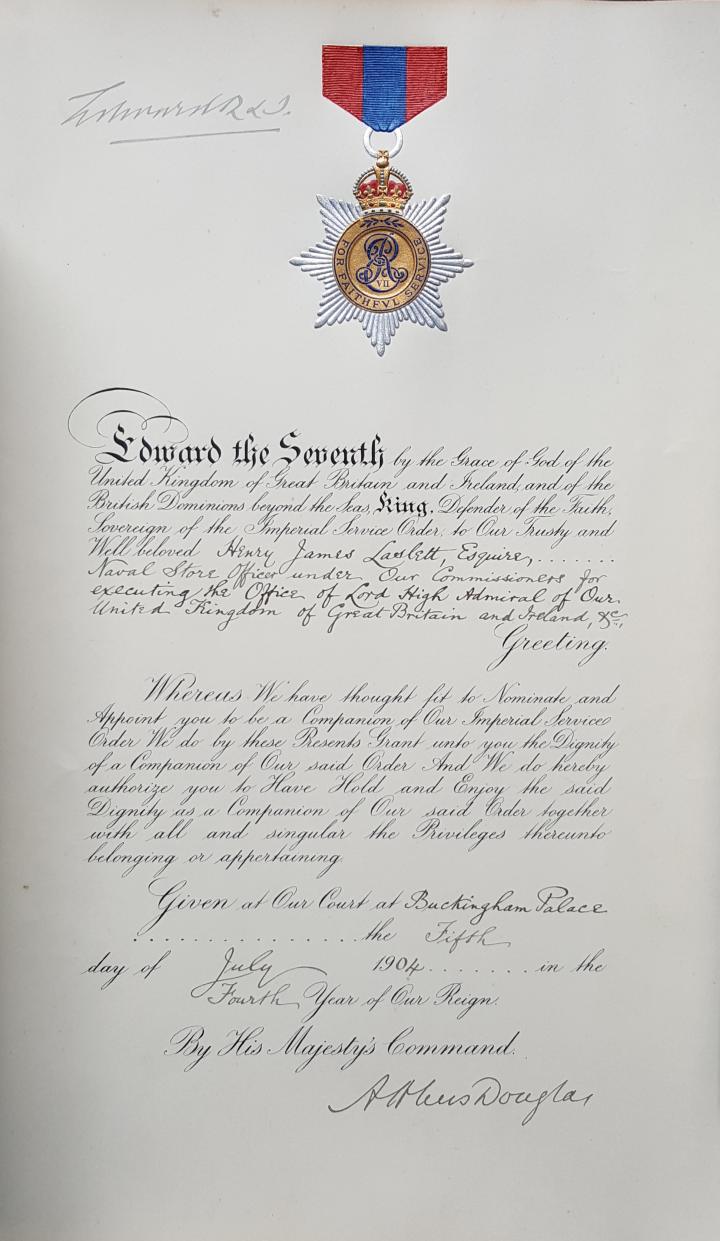 Edward R & I.
FOR FAITHFVL SERVICE
VII
Edward the Seventh by the Grace of God of the
United Kingdom of Great Britain and Ireland, and of the
British Dominions beyond the Seas, King, Defender of the Faith,
Sovereign of the Imperial Service Order, to Our Trusty and
Well beloved Henry James Laslett, Esquire,.......
Naval Store Officer under Our Commissioners for
executing the Office of Lord High Admiral of Our
United Kingdom of Great Britain and Ireland, &c.,
Greeting.
Whereas We have thought fit to Nominate and
Appoint you to be a Companion of Our Imperial Service
Order We do by these Presents Grant unto you the Dignity
of a Companion of Our said Order And We do hereby
authorize you to Have Hold and Enjoy the said
Dignity as a Companion of Our said Order together
with all and singular the Privileges thereunto
belonging or appertaining.
Given at Our Court at Buckingham Palace
................the Fifth
day of July 1904.......in the
Fourth Year of Our Reign.
By His Majesty's Command.
Douglas